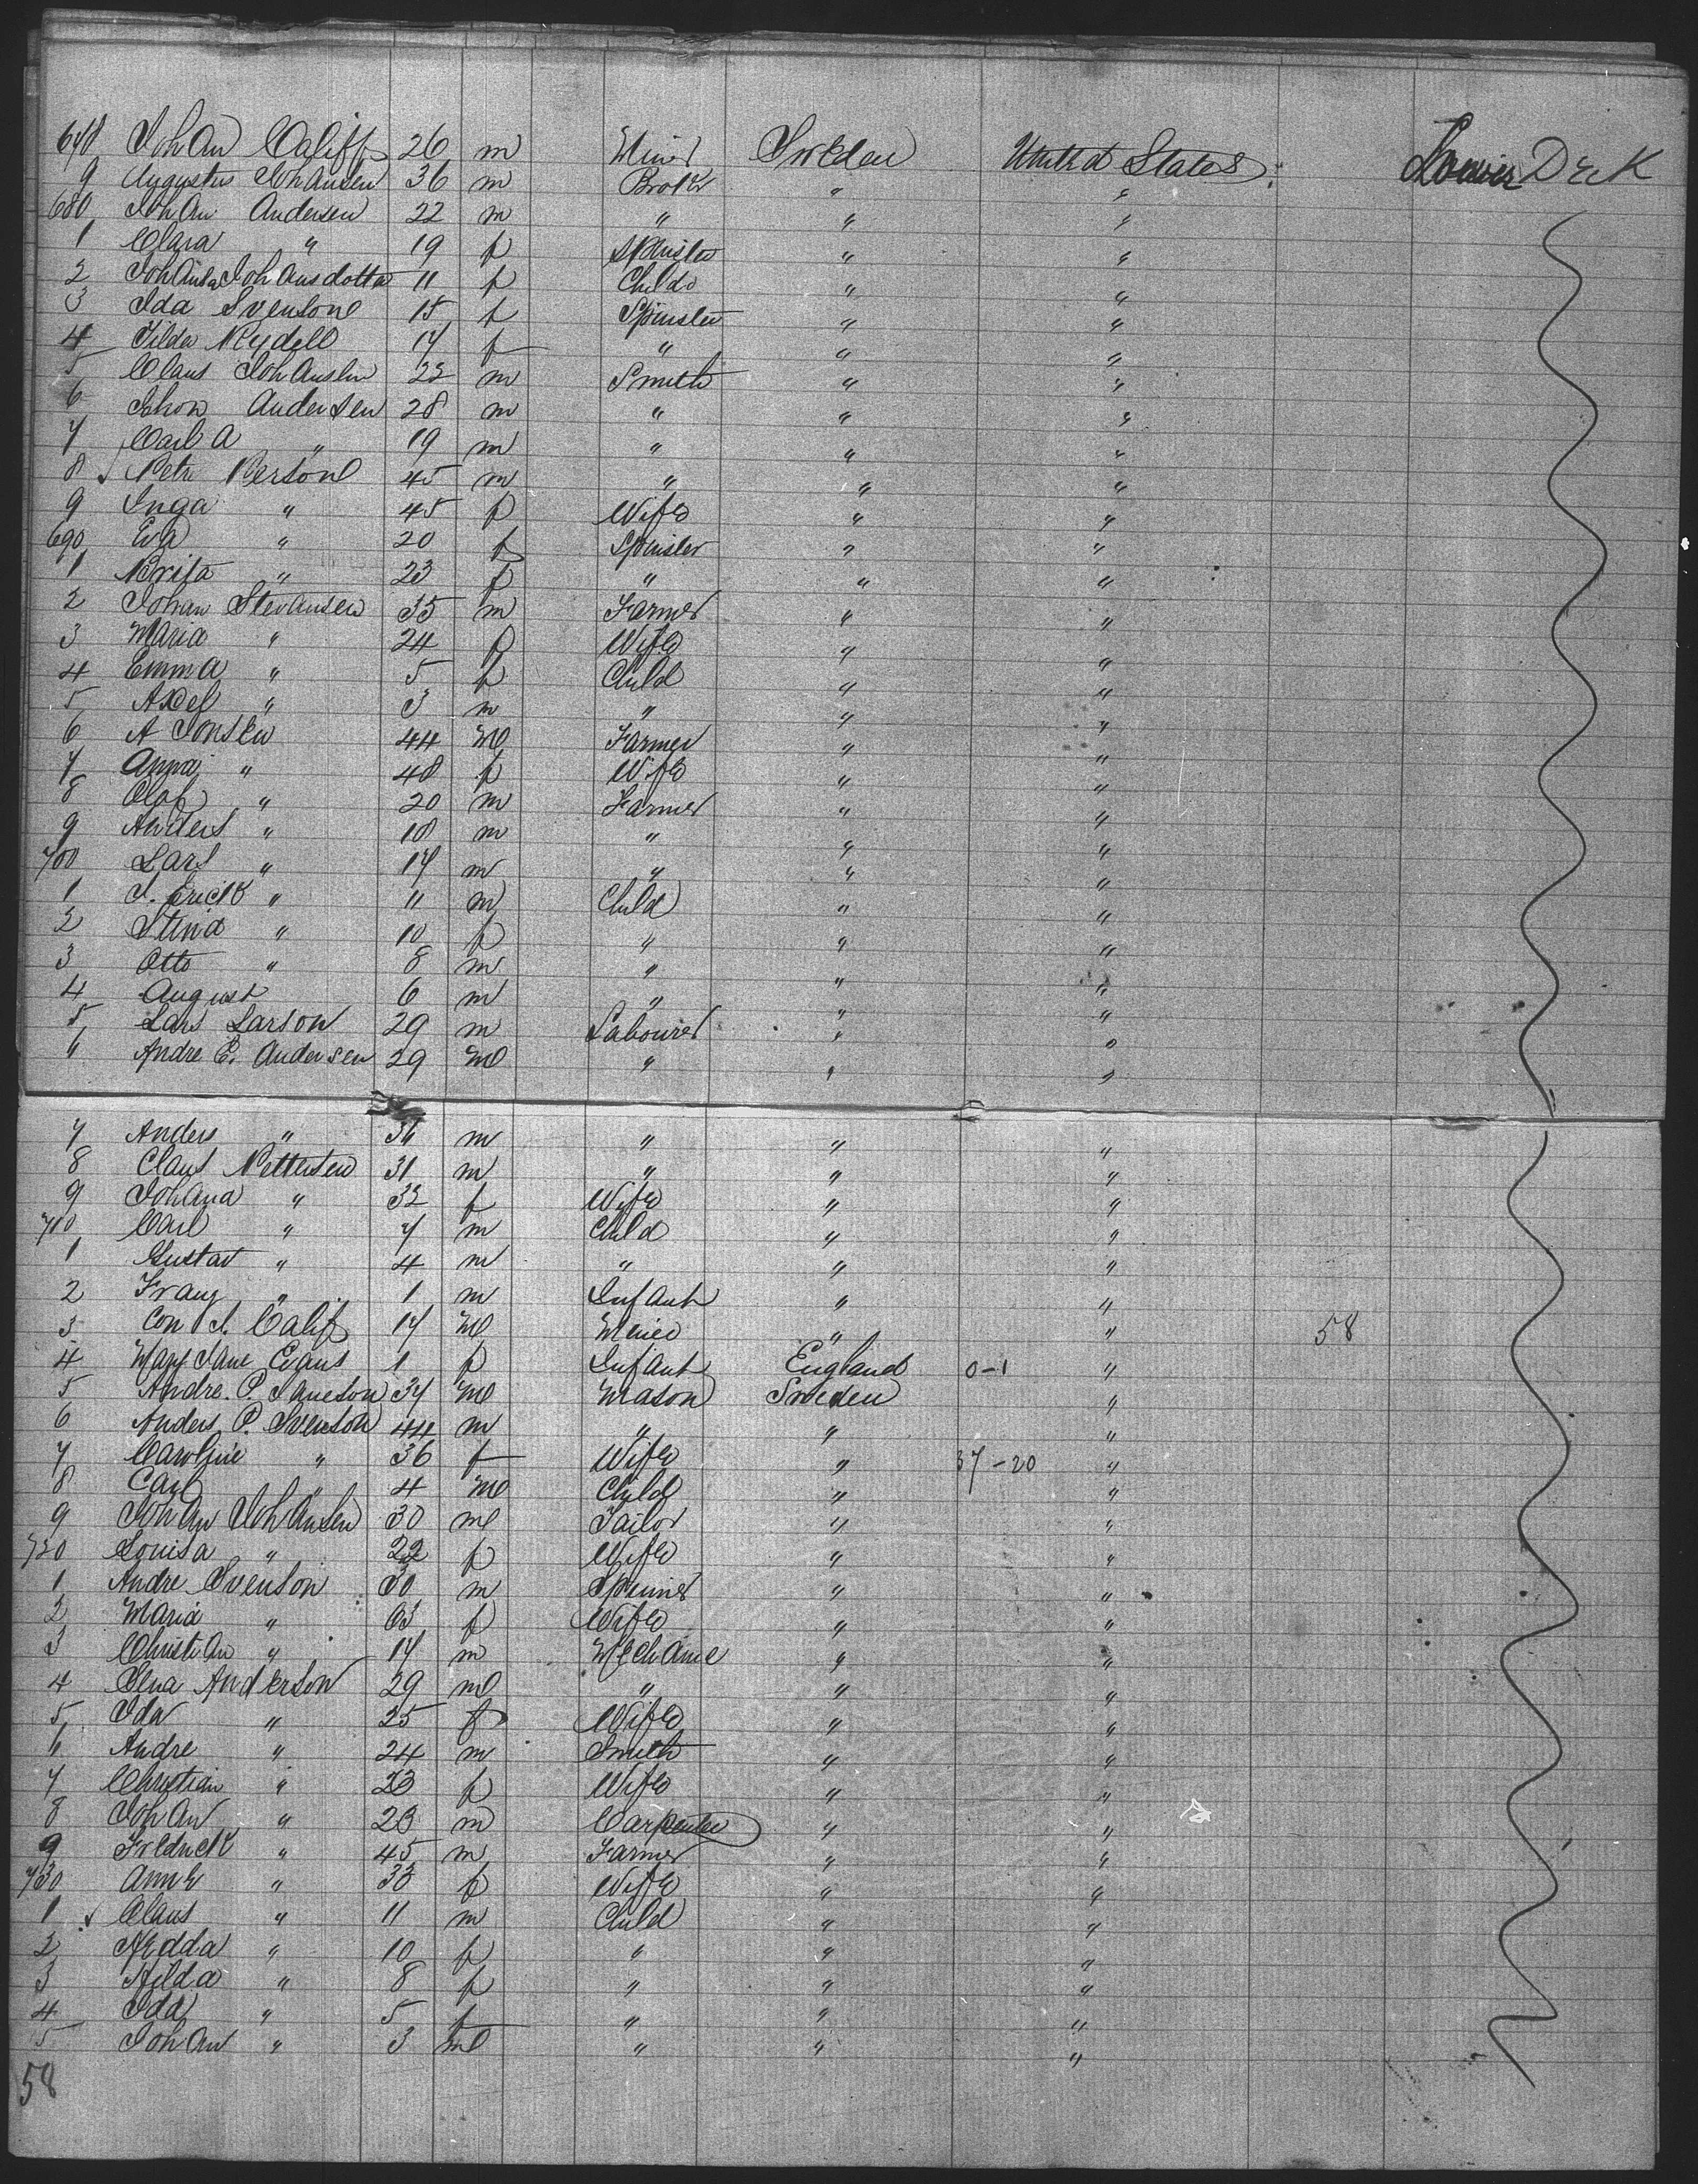 678 Johan Califf 26 m Miner Sweden United States Lower Deck
9 Augustus Johansen 36 m " "
680 Johan Andersen 22 m " " "
1 Clara " 19 f Spinster " "
2 Johansdotter 11 f Child " "
3 Ida Svenson 15 f Spinster " "
4 Tilda Rydell 17 f " " "
5 Claus Johansen 22 m Smith " "
6 Jhon Andersen 28 m " " "
7 Carl A " 19 m " " "
8 Petr Person 45 m " " "
9 Inga " 45 f Wife " "
690 Eva " 20 f Spinster " "
1 Brita " 23 f " " "
2 Johan Stevansen 35 m Farmer " "
3 Maria " 24 f Wife " "
4 Emma " 5 f Child " "
5 Axel " 3 m " " "
6 A Jonsen 44 m Farmer " "
7 Anna " 48 f Wife " "
8 Olof " 20 m Farmer " "
9 Anders " 18 m " " "
700 Lars " 17 m " " "
1 J. Erick " 11 m Child " "
2 Stina " 10 f " " "
3 Otto " 8 m " " "
4 August 6 m " " "
5 Lars Larson 29 m Labourer " "
6 Andre E. Andersen 29 m " " "
7 Anders " 36 m " " "
8 Claus Pettersen 31 m " " "
9 Johana " 32 f Wife " "
710 Carl " 7 m Child " "
1 Gustav " 4 m " " "
2 Franz " 1 m Infant " "
3 Con J. Califf 17 m Miner " " 58
4 Mary Jane Evans 1 f Infant England 0-1 "
5 Andre. P. Janeson 34 m Mason Sweden "
6 Anders P. Svenson 44 m " " "
7 Caroline " 36 f Wife " 37-20 "
8 Carl " 4 m Child " "
9 Johan Johansen 30 m Tailor " "
720 Louisa " 22 f Wife " "
1 Andre Svenson 30 m Spinner " "
2 Maria " 63 f Wife " "
3 Christian " 17 m Mechanic " "
4 Anderson 29 m " " "
5 Ida " 25 f Wife " "
6 Andre " 24 m Smith " "
7 Christian " 23 f Wife " "
8 Johan " 23 m Carpenter " "
9 Fredrick " 45 m Farmer " "
730 Anne " 33 f Wife " "
1 Claus " 11 m Child " "
2 Hedda " 10 f " " "
3 Hilda " 8 f " " "
4 Ida " 5 f " " "
5 Johan " 3 m " " "
58